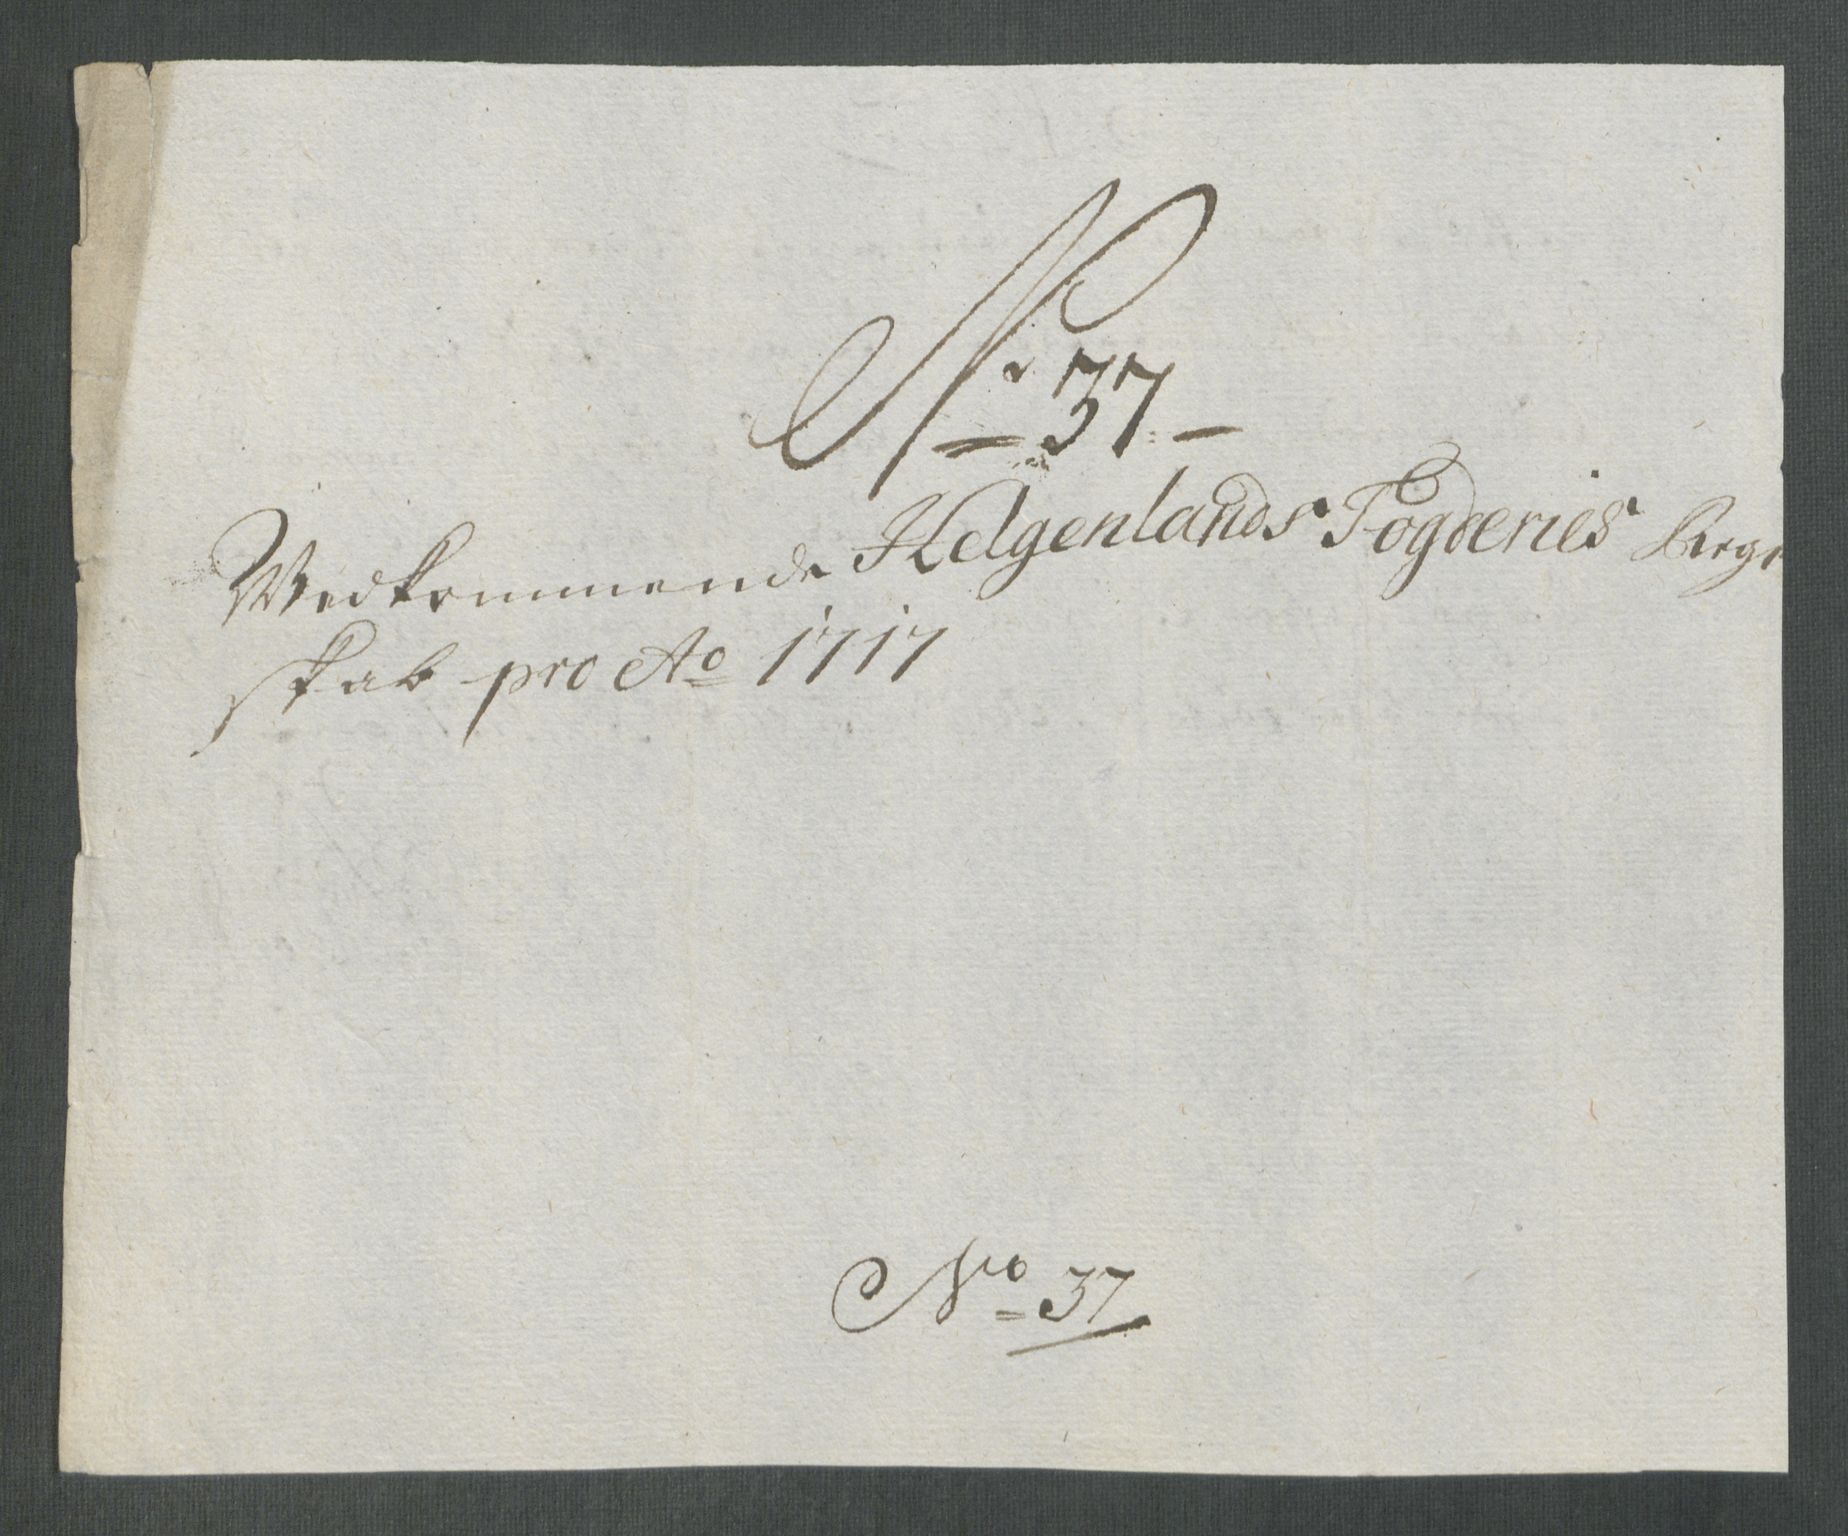 No 37
Vedkommende Helgenlands Fogderies Regn
skab pro Ao 1717
No 37